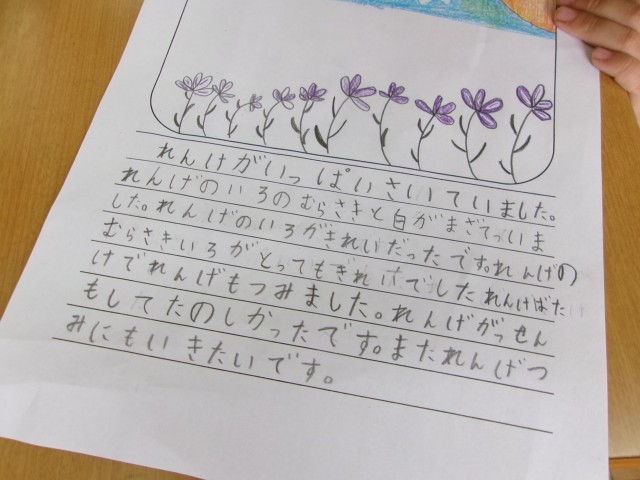 れんけがいっぱいさいていました。
れんげのいろのむらさきと白がまざてっいま
した。れんげのいろがきれいだったです。れんげの
むらさきいろがとってもきれいでしたれんけばたけ
けでれんげもつみました。れんげがっせん
もしてたのしかったです。またれんげつ
みにもいきたいです。